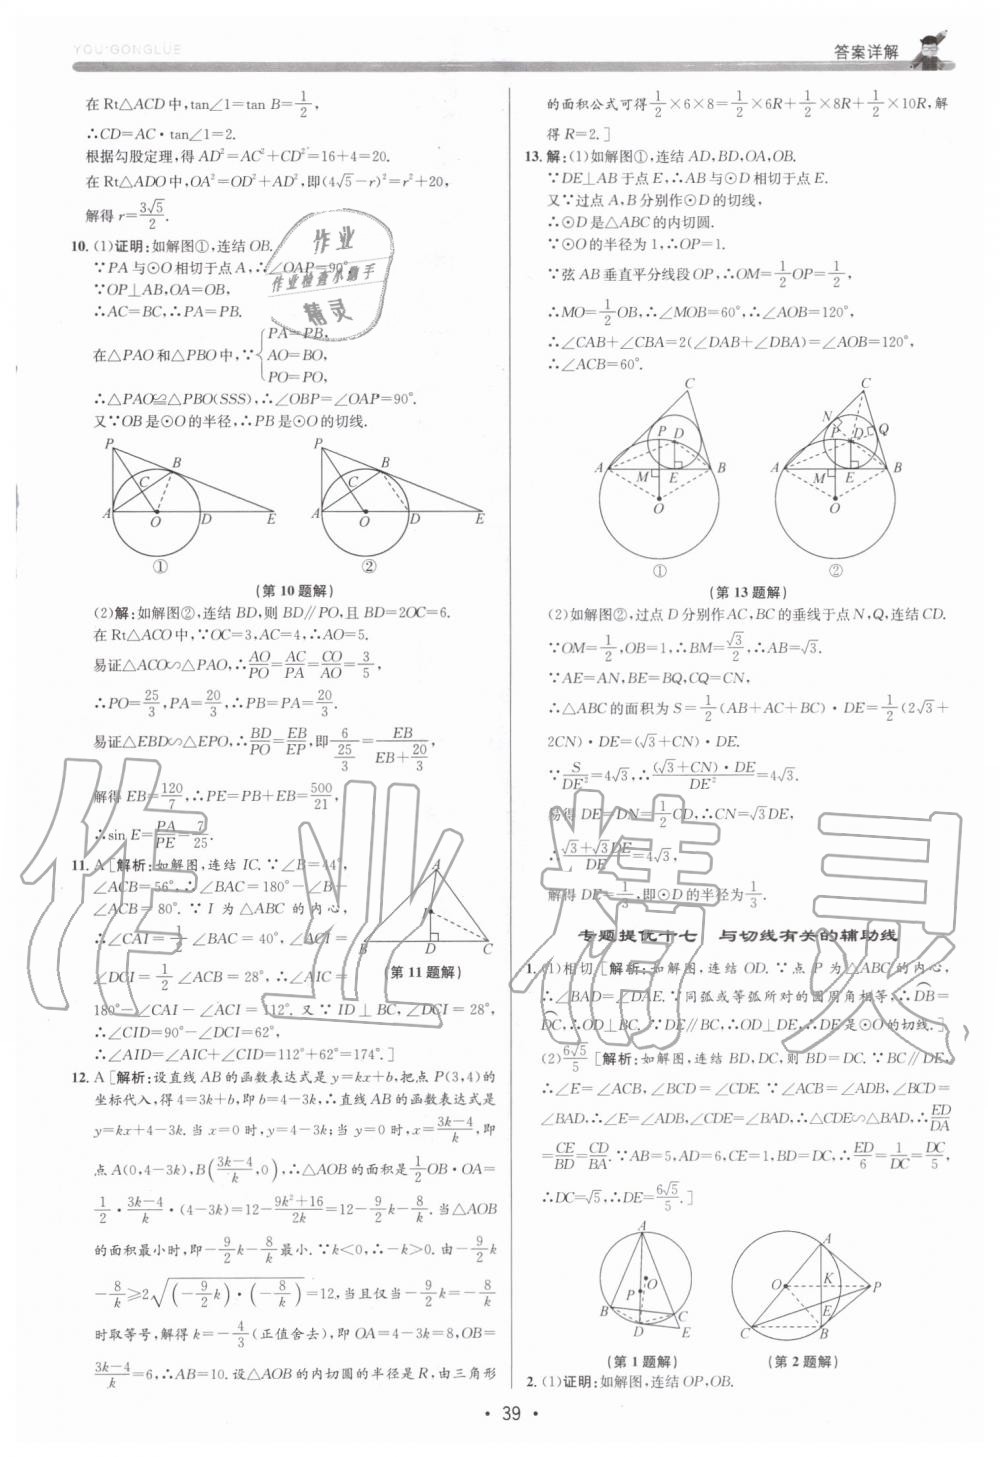 YOU·GONGLÜE
答案详解
在Rt△ACD中,tan∠1=tan B=1/2,
∴CD=AC·tan∠1=2.
根据勾股定理,得AD²=AC²+CD²=16+4=20.
在Rt△ADO中,OA²=OD²+AD²,即(4√5-r)²=r²+20,
解得r=3√5/2.
10. (1)证明:如解图①,连结OB.
∵PA与⊙O相切于点A,∴∠OAP=90°.
∵OP⊥AB,OA=OB,
∴AC=BC,∴PA=PB.
在△PAO和△PBO中,∵{PA=PB,
AO=BO,
PO=PO,
∴△PAO≌△PBO(SSS),∴∠OBP=∠OAP=90°.
又∵OB是⊙O的半径,∴PB是⊙O的切线.
P B C A O D E
P B C A O D E
① ②
(第10题解)
(2)解:如解图②,连结BD,则BD∥PO,且BD=2OC=6.
在Rt△ACO中,∵OC=3,AC=4,∴AO=5.
易证△ACO∽△PAO,∴AO/PO=AC/PA=CO/AO=3/5,
∴PO=25/3,PA=20/3,∴PB=PA=20/3.
易证△EBD∽△EPO,∴BD/PO=EB/EP,即6/(25/3)=EB/(EB+20/3)
解得EB=120/7,∴PE=PB+EB=500/21,
∴sin E=PA/PE=7/25.
11. A [解析:如解图,连结IC.∵∠B=44°,
∠ACB=56°,∴∠BAC=180°-∠B-
∠ACB=80°.∵I为△ABC的内心,
∴∠CAI=1/2∠BAC=40°,∠ACI=
∠DCI=1/2∠ACB=28°,∴∠AIC=
180°-∠CAI-∠ACI=112°.又∵ID⊥BC,∠DCI=28°,
∴∠CID=90°-∠DCI=62°,
∴∠AID=∠AIC+∠CID=112°+62°=174°.]
A I B D C
(第11题解)
12. A [解析:设直线AB的函数表达式是y=kx+b,把点P(3,4)的
坐标代入,得4=3k+b,即b=4-3k,∴直线AB的函数表达式是
y=kx+4-3k.当x=0时,y=4-3k;当y=0时,x=3k-4/k,即
点A(0,4-3k),B(3k-4/k,0),∴△AOB的面积是1/2OB·OA=
1/2·3k-4/k·(4-3k)=12-9k²+16/2k=12-9/2k-8/k.当△AOB
的面积最小时,即-9/2k-8/k最小.∵k<0,∴-k>0.由-9/2k
-8/k≥2√(-9/2k)·(-8/k)=12,当且仅当-9/2k=-8/k
时取等号,解得k=-4/3(正值舍去),即OA=4-3k=8,OB=
3k-4/k=6,∴AB=10.设△AOB的内切圆的半径是R,由三角形
的面积公式可得1/2×6×8=1/2×6R+1/2×8R+1/2×10R,解
得R=2.]
13. 解:(1)如解图①,连结AD,BD,OA,OB.
∵DE⊥AB于点E,∴AB与⊙D相切于点E.
又∵过点A,B分别作⊙D的切线,
∴⊙D是△ABC的内切圆.
∵⊙O的半径为1,∴OP=1.
∵弦AB垂直平分线段OP,∴OM=1/2OP=1/2,
∴MO=1/2OB,∴∠MOB=60°,∴∠AOB=120°,
∴∠CAB+∠CBA=2(∠DAB+∠DBA)=∠AOB=120°,
∴∠ACB=60°.
C P D A M E B O
C N P D Q A M E B O
① ②
(第13题解)
(2)如解图②,过点D分别作AC,BC的垂线于点N,Q,连结CD.
∵OM=1/2,OB=1,∴BM=√3/2,∴AB=√3.
∵AE=AN,BE=BQ,CQ=CN,
∴△ABC的面积为S=1/2(AB+AC+BC)·DE=1/2(2√3+
2CN)·DE=(√3+CN)·DE.
∵S/DE²=4√3,∴(√3+CN)·DE/DE²=4√3,
易得DE=DN=1/2CD,∴CN=√3DE,
∴√3+√3DE/DE=4√3,
解得DE=1/3,即⊙D的半径为1/3.
专题提优十七 与切线有关的辅助线
1. (1)相切 [解析:如解图,连结OD.∵点P为△ABC的内心,
∴∠BAD=∠DAE.∵同弧或等弧所对的圆周角相等,∴DB=
DC,∴OD⊥BC.∵DE∥BC,∴OD⊥DE,∴DE是⊙O的切线.]
(2)6√5/5 [解析:如解图,连结BD,DC,则BD=DC.∵BC∥DE,
∴∠E=∠ACB,∠BCD=∠CDE.∵∠ACB=∠ADB,∠BCD=
∠BAD,∴∠E=∠ADB,∠CDE=∠BAD,∴△CDE∽△BAD,∴ED/DA
=CE/BD=CD/BA.∵AB=5,AD=6,CE=1,BD=DC,∴ED/6=1/DC=DC/5,
∴DC=√5,∴DE=6√5/5.]
A O P B C D E
A O K P E C B
(第1题解) (第2题解)
2. (1)证明:如解图,连结OP,OB.
· 39 ·
作业
作业检查小助手
精灵
作业精灵